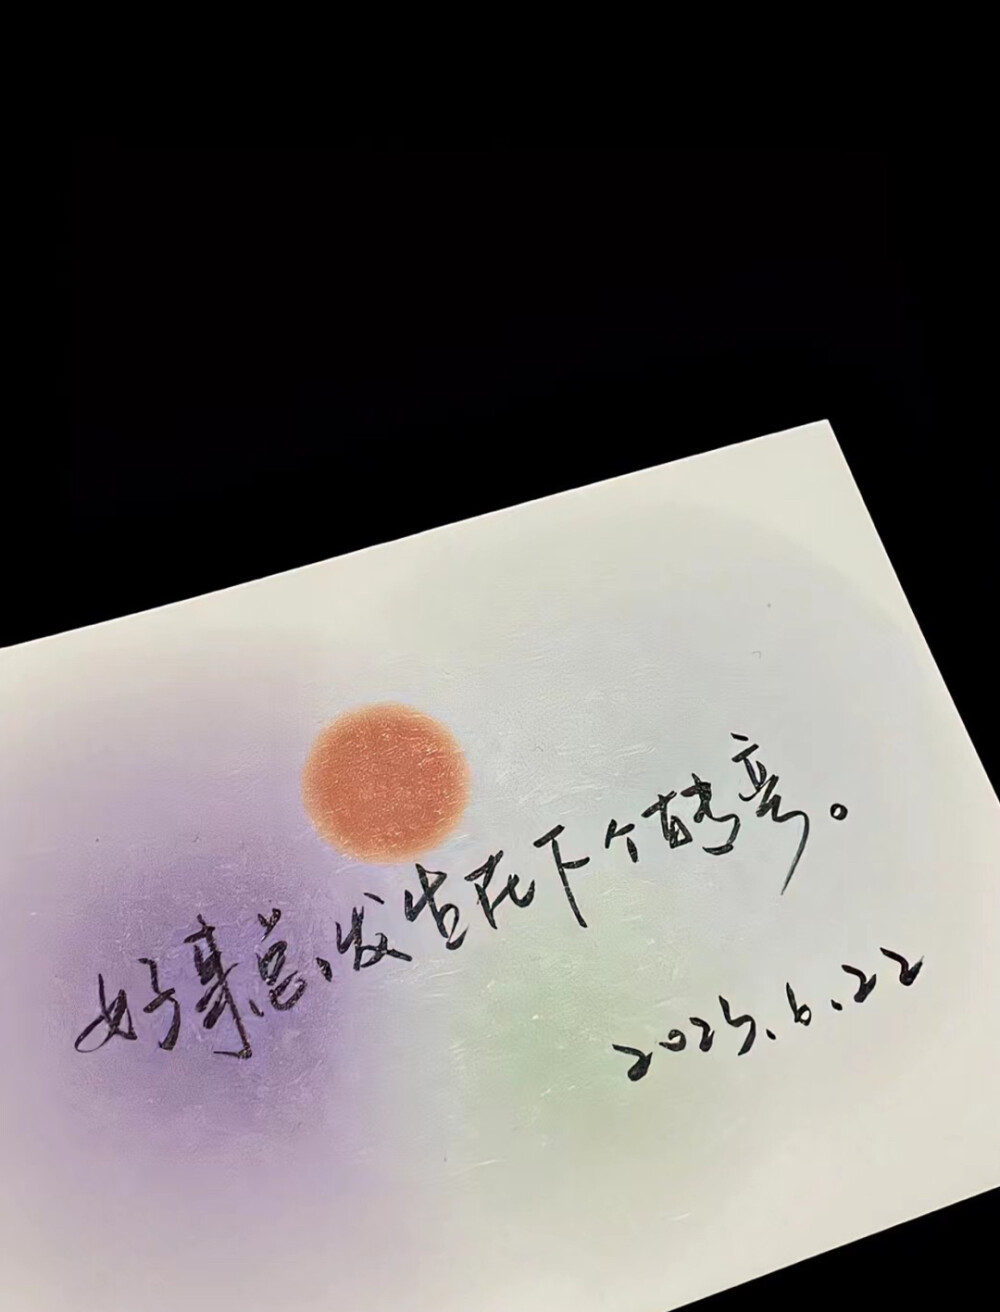 好事总发生在下个转弯。
2025.6.22